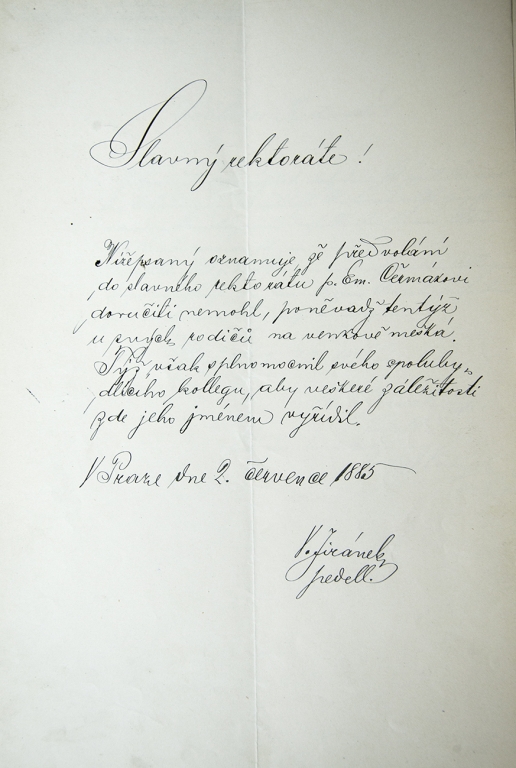 Slavný rektoráte!
Nížepsaný oznamuje, že předvolání
do slavného rektorátu p. Em. Čeřmákovi
doručiti nemohl, poněvadž tentýž
u svých rodičů na venkově mešká.
Týž však splnomocnil svého spoluby„
dlícího kollegu, aby veškeré záležitosti
zde jeho jménem vyřídil.
V Praze dne 2. července 1885
V. Jiránek
pedell.